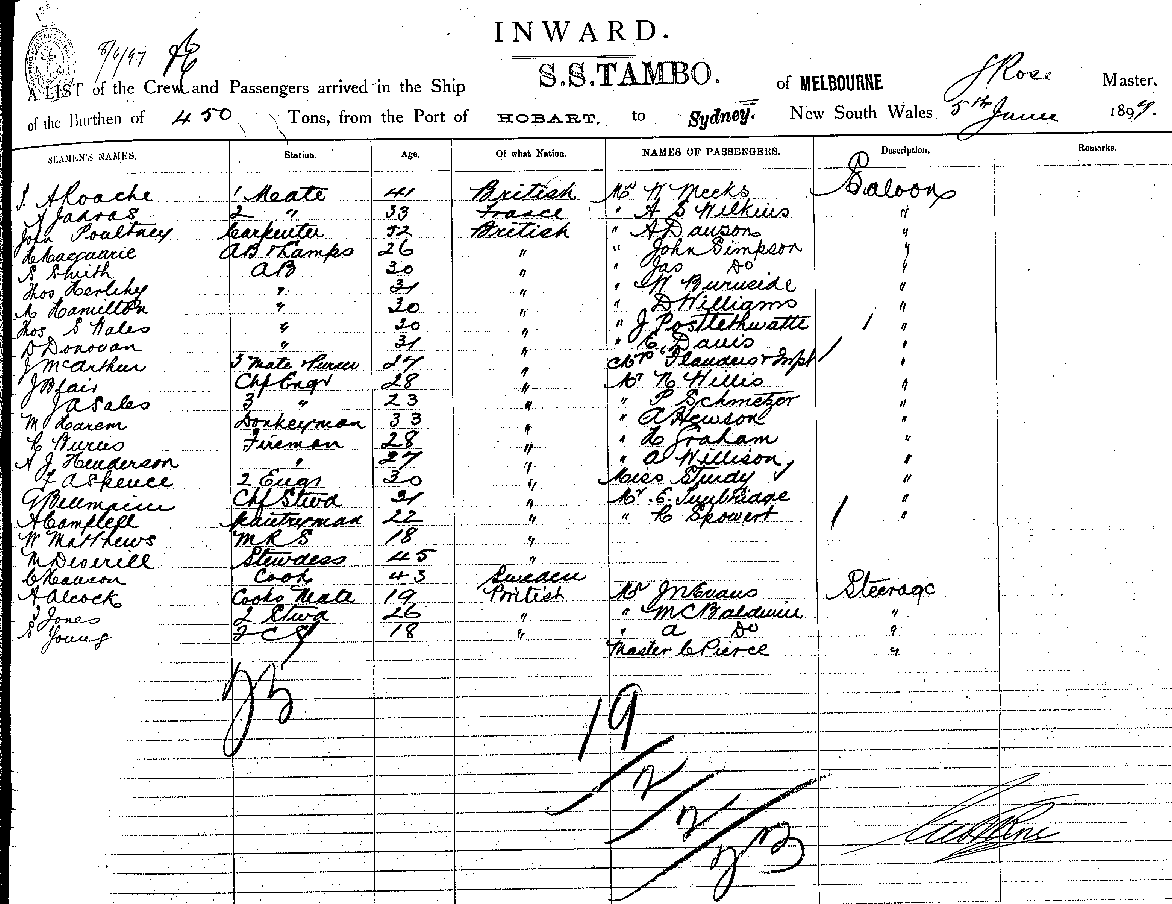 INWARD.
8/6/97
A LIST of the Crew and Passengers arrived in the Ship S.S. TAMBO. of MELBOURNE J Rose Master.
of the Burthen of 450 Tons, from the Port of HOBART, to Sydney. New South Wales 5th June 1897.
SEAMEN'S NAMES. Station. Age. Of what Nation. NAMES OF PASSENGERS. Description. Remarks.
A Roache 1 Mate 41 British Mr W Meeks Saloon
2 " 33 France " A S Wilkins "
John Poultney Carpenter 52 British " A Dawson "
AB & Lamps 26 " " John Simpson "
S Smith AB 30 " " Jas Do "
Thos Herlihy " 31 " " W Burnside "
A Hamilton " 30 " " D Williams "
Thos S Wales " 20 " " J Postlethwatte "
D Donovan " 31 " " E Davis "
J McArthur 3 Mate & Purser 27 " "
J Blair Chf Engr 28 " Mr N Willis "
J A Sales 3 " 23 " " P Schmetzor "
M Harem Donkeyman 33 " " A Hewson "
Fireman 28 " " H Graham "
A J Henderson " 27 " " A Willison "
F A Spence 2 Engr 30 " Miss Sturdy "
Chf Stwd 31 " Mr E Turbridge "
A Campbell pantryman 22 " " H Spowert "
W Matthews M R S 18 "
M Deverill Stewdess 45 "
Cook 43 Sweden
A Alcock Cooks Mate 19 British Mr J N Evans Steerage
J Jones 2 Stwd 26 " " M C Baldwin "
S Young 2 C S 18 " " A Do "
Master C Pierce "
19
2
2
23